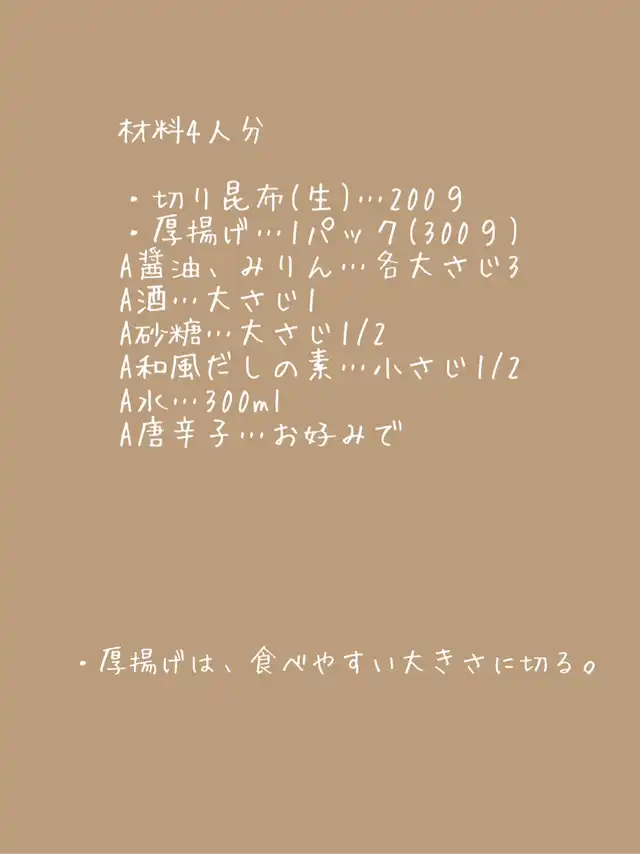 材料4人分
・切り昆布(生)…200g
・厚揚げ…1パック(300g)
A醤油、みりん…各大さじ3
A酒…大さじ1
A砂糖…大さじ1/2
A和風だしの素…小さじ1/2
A水…300ml
A唐辛子…お好みで
・厚揚げは、食べやすい大きさに切る。